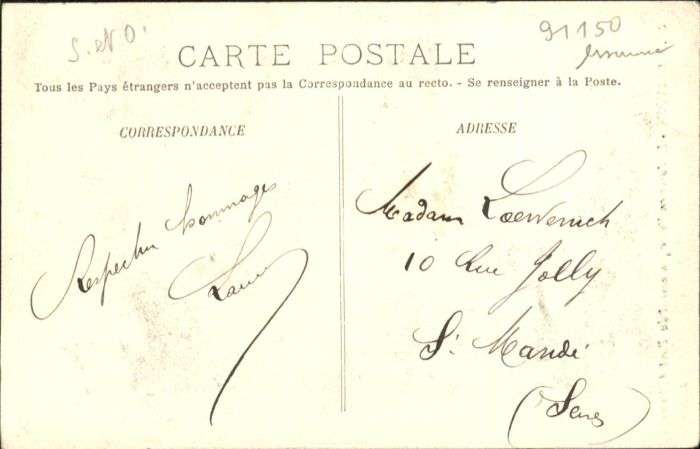 S. et O.
91150
CARTE POSTALE
Tous les Pays étrangers n'acceptent pas la Correspondance au recto. - Se renseigner à la Poste.
CORRESPONDANCE
Respectueux hommages
ADRESSE
Madame
10 Rue Jolly
St. Mandé
(Seine)